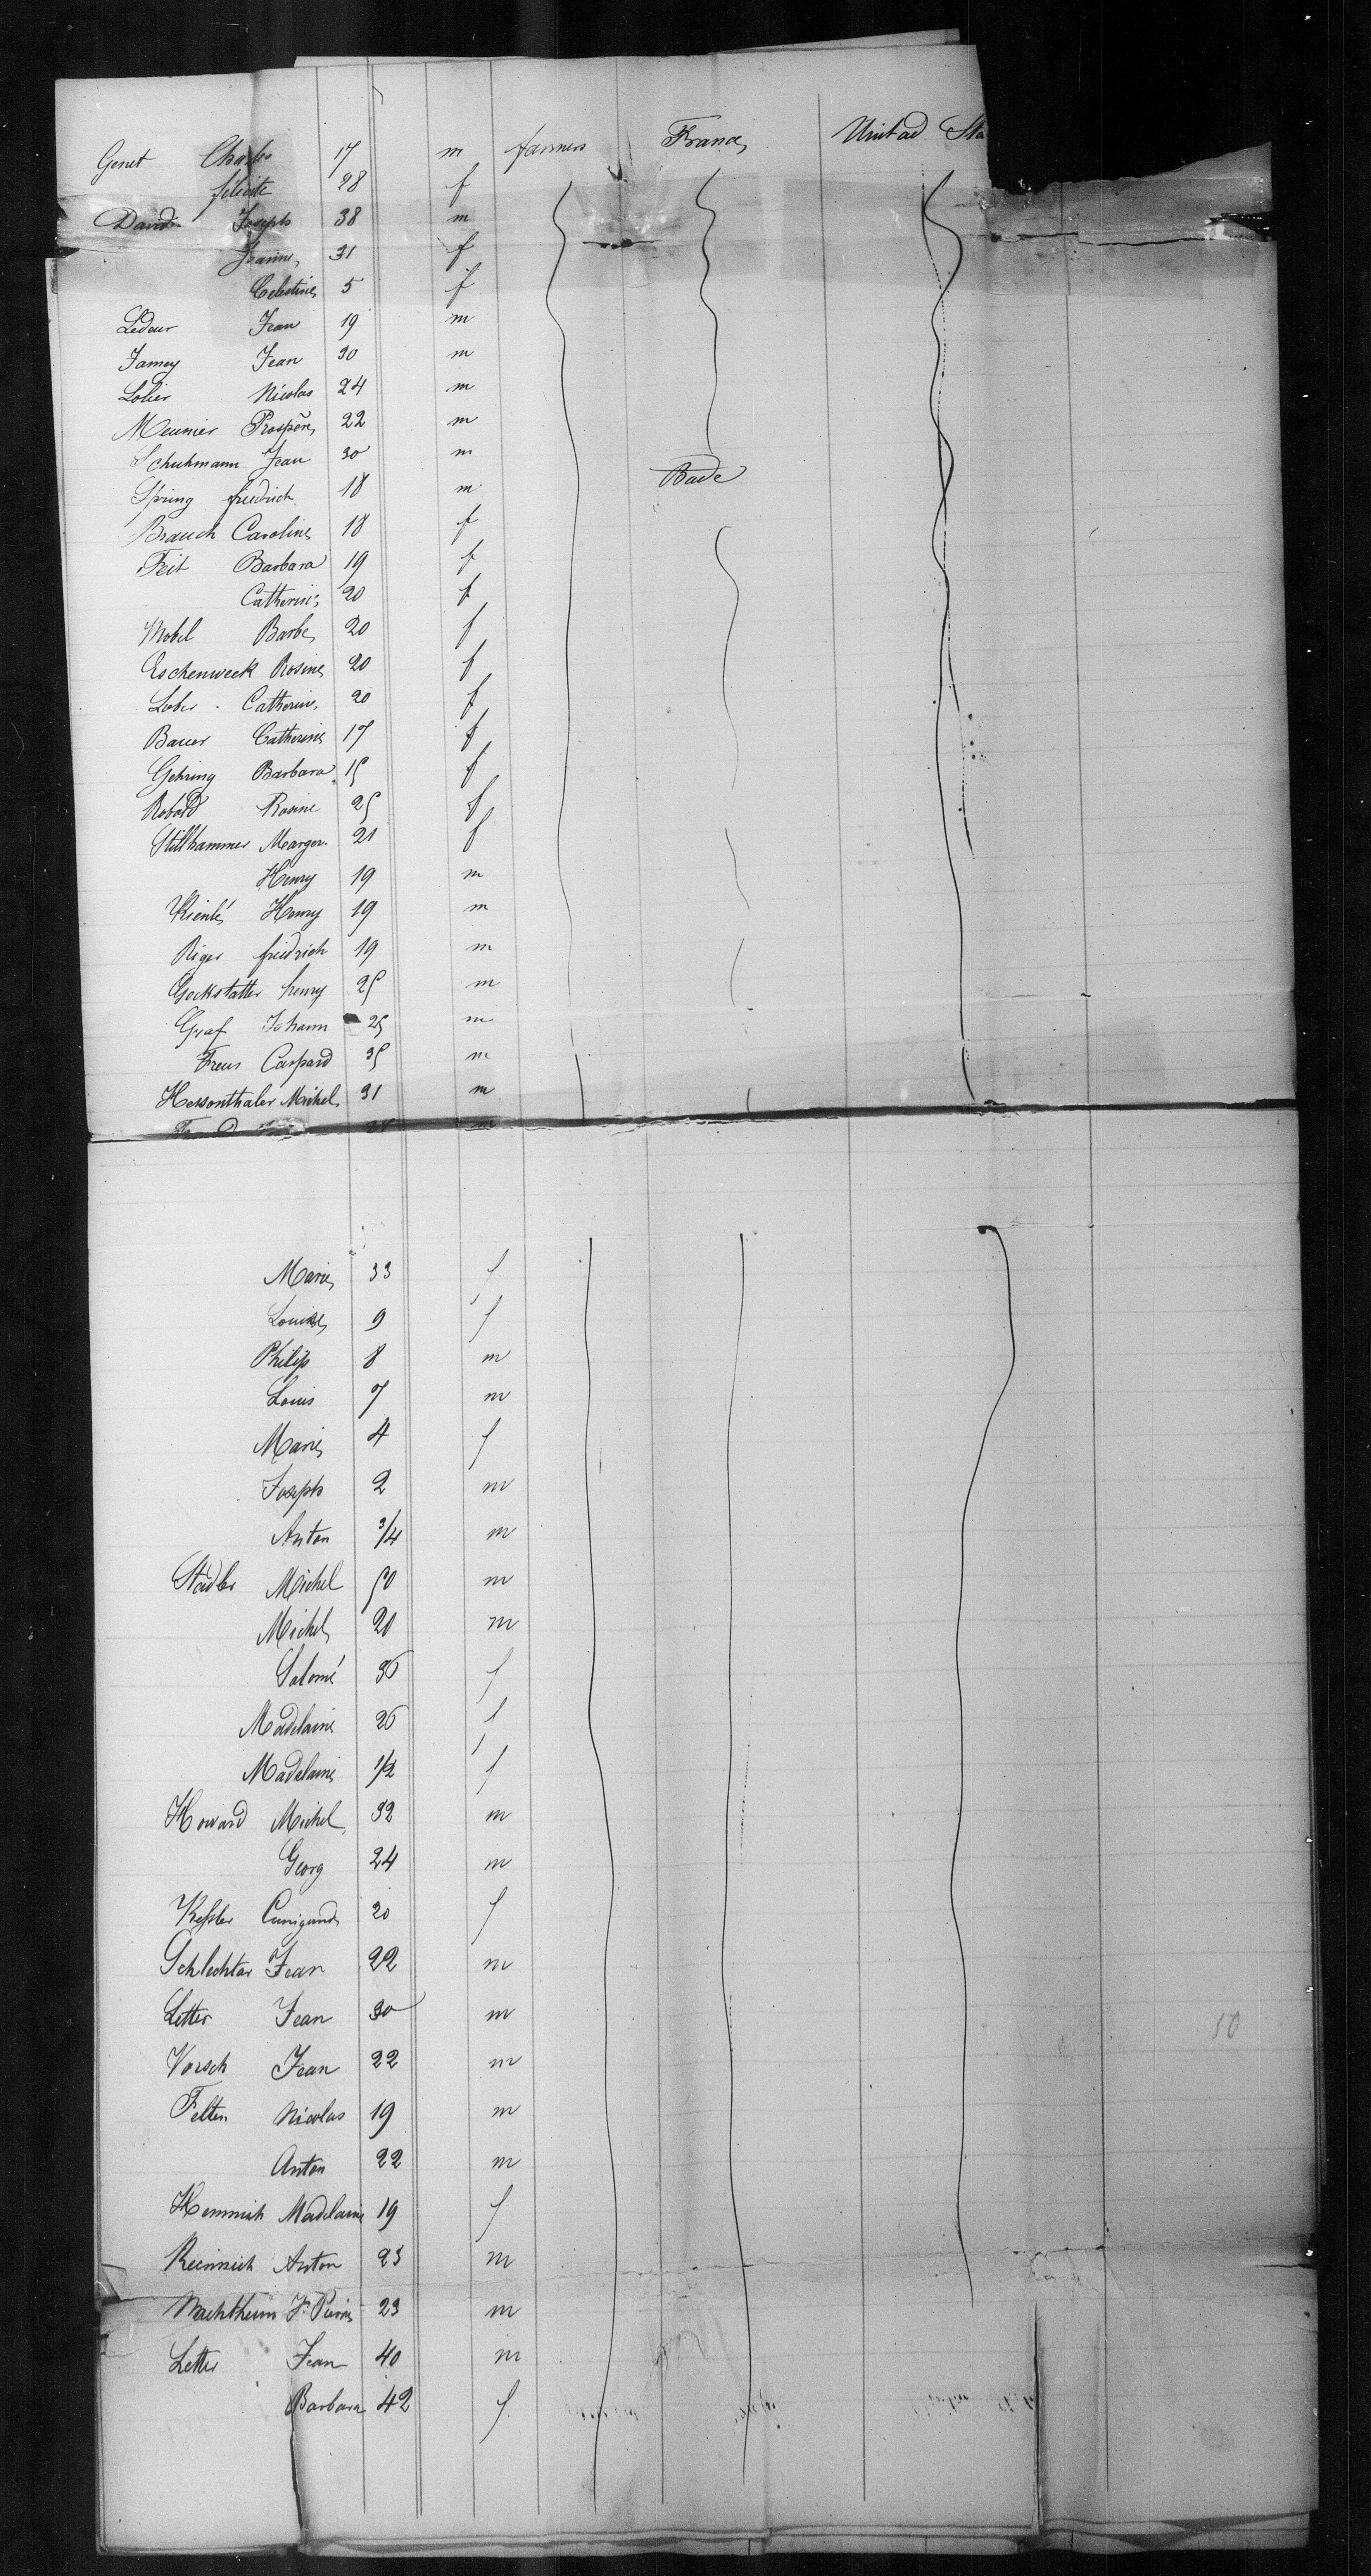 Genet Charles 17 m farmers France United Sta
félicité 28 f
David Joseph 38 m
Jeanne 31 f
Celestine 5 f
Ledeur Jean 19 m
Jamey Jean 30 m
Lolier Nicolas 24 m
Meunier Prospère 22 m
Schuhmann Jean 30 m
Spring friedrich 18 m Bade
Brauch Caroline 18 f
Feit Barbara 19 f
Catherine 20 f
Mobel Barbe 20 f
Eschenweck Rosine 20 f
Lober Catherine 20 f
Bauer Catherine 17 f
Gehring Barbara 15 f
Robold Rosine 25 f
Stillhammer Margar. 21 f
Henry 19 m
Kienlé Henry 19 m
Riger friedrich 19 m
Gockstatter henry 25 m
Graf Johann 25 m
Freus Caspard 35 m
Hessonthaler Michel 31 m
Marie 33 f
Louise 9 f
Philip 8 m
Louis 7 m
Marie 4 f
Joseph 2 m
Anton 3/4 m
Stadler Michel 50 m
Michel 20 m
Salomé 36 f
Madelaine 26 f
Madelaine 1/2 f
Howard Michel 32 m
Georg 24 m
Kessler Cunigunde 20 f
Schlechter Jean 22 m
Letter Jean 30 m
Vorsch Jean 22 m
Felten Nicolas 19 m
Anton 22 m
Hemmish Madelaine 19 f
Reinnich Anton 23 m
Nachtheim Jn Pierre 23 m
Letter Jean 40 m
Barbara 42 f
50